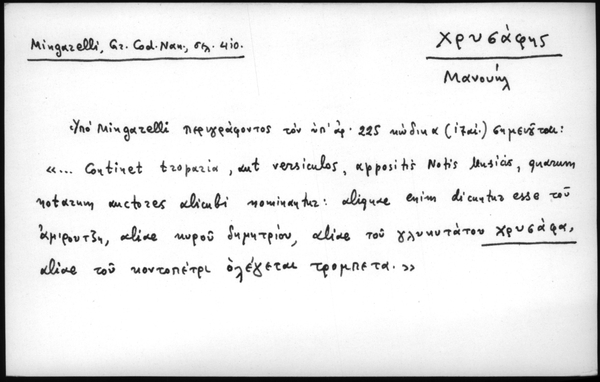 Mingarelli, Gr. Cod. Nan., σελ. 410.
Χρυσάφης
Μανουήλ
Ὑπό Mingarelli περιγράφοντος τόν ὑπ' ἀρ. 225 κώδικα σημειοῦται:
«... Continet troparia, aut versiculos, appositis Notis Musicis, quarum
notarum auctores alicubi nominantur: aliquae enim dicuntur esse τοῦ
ἀμιρουτζῆ, aliae κυροῦ δημητρίου, aliae τοῦ γλυκυτάτου χρυσάφα,
aliae τοῦ κοντοπέτρι ὁ λέγεται τρομπετα.»